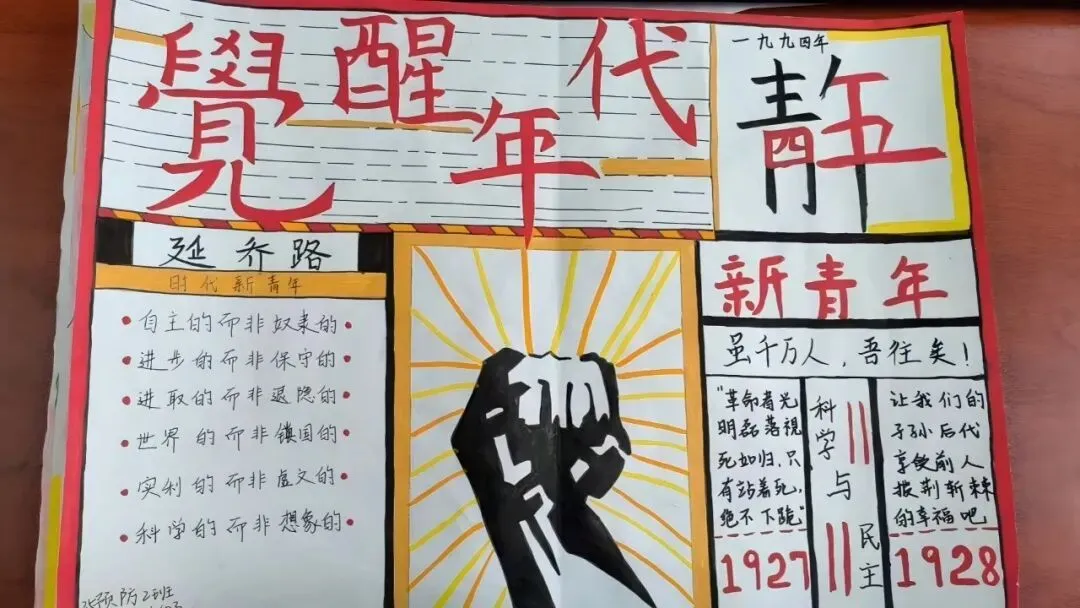 覺醒年代
一九九四年
青年
五四
延乔路
时代新青年
自主的而非奴隶的
进步的而非保守的
进取的而非退隐的
世界的而非镇国的
实利的而非虚文的
科学的而非想象的
预防2班
新青年
虽千万人，吾往矣！
"革命者光
明磊落視
死如归,只
有站着死,
绝不下跪"
1927
科学
与
民主
让我们的
子孙后代
享受前人
披荆斩棘
的幸福吧
1928